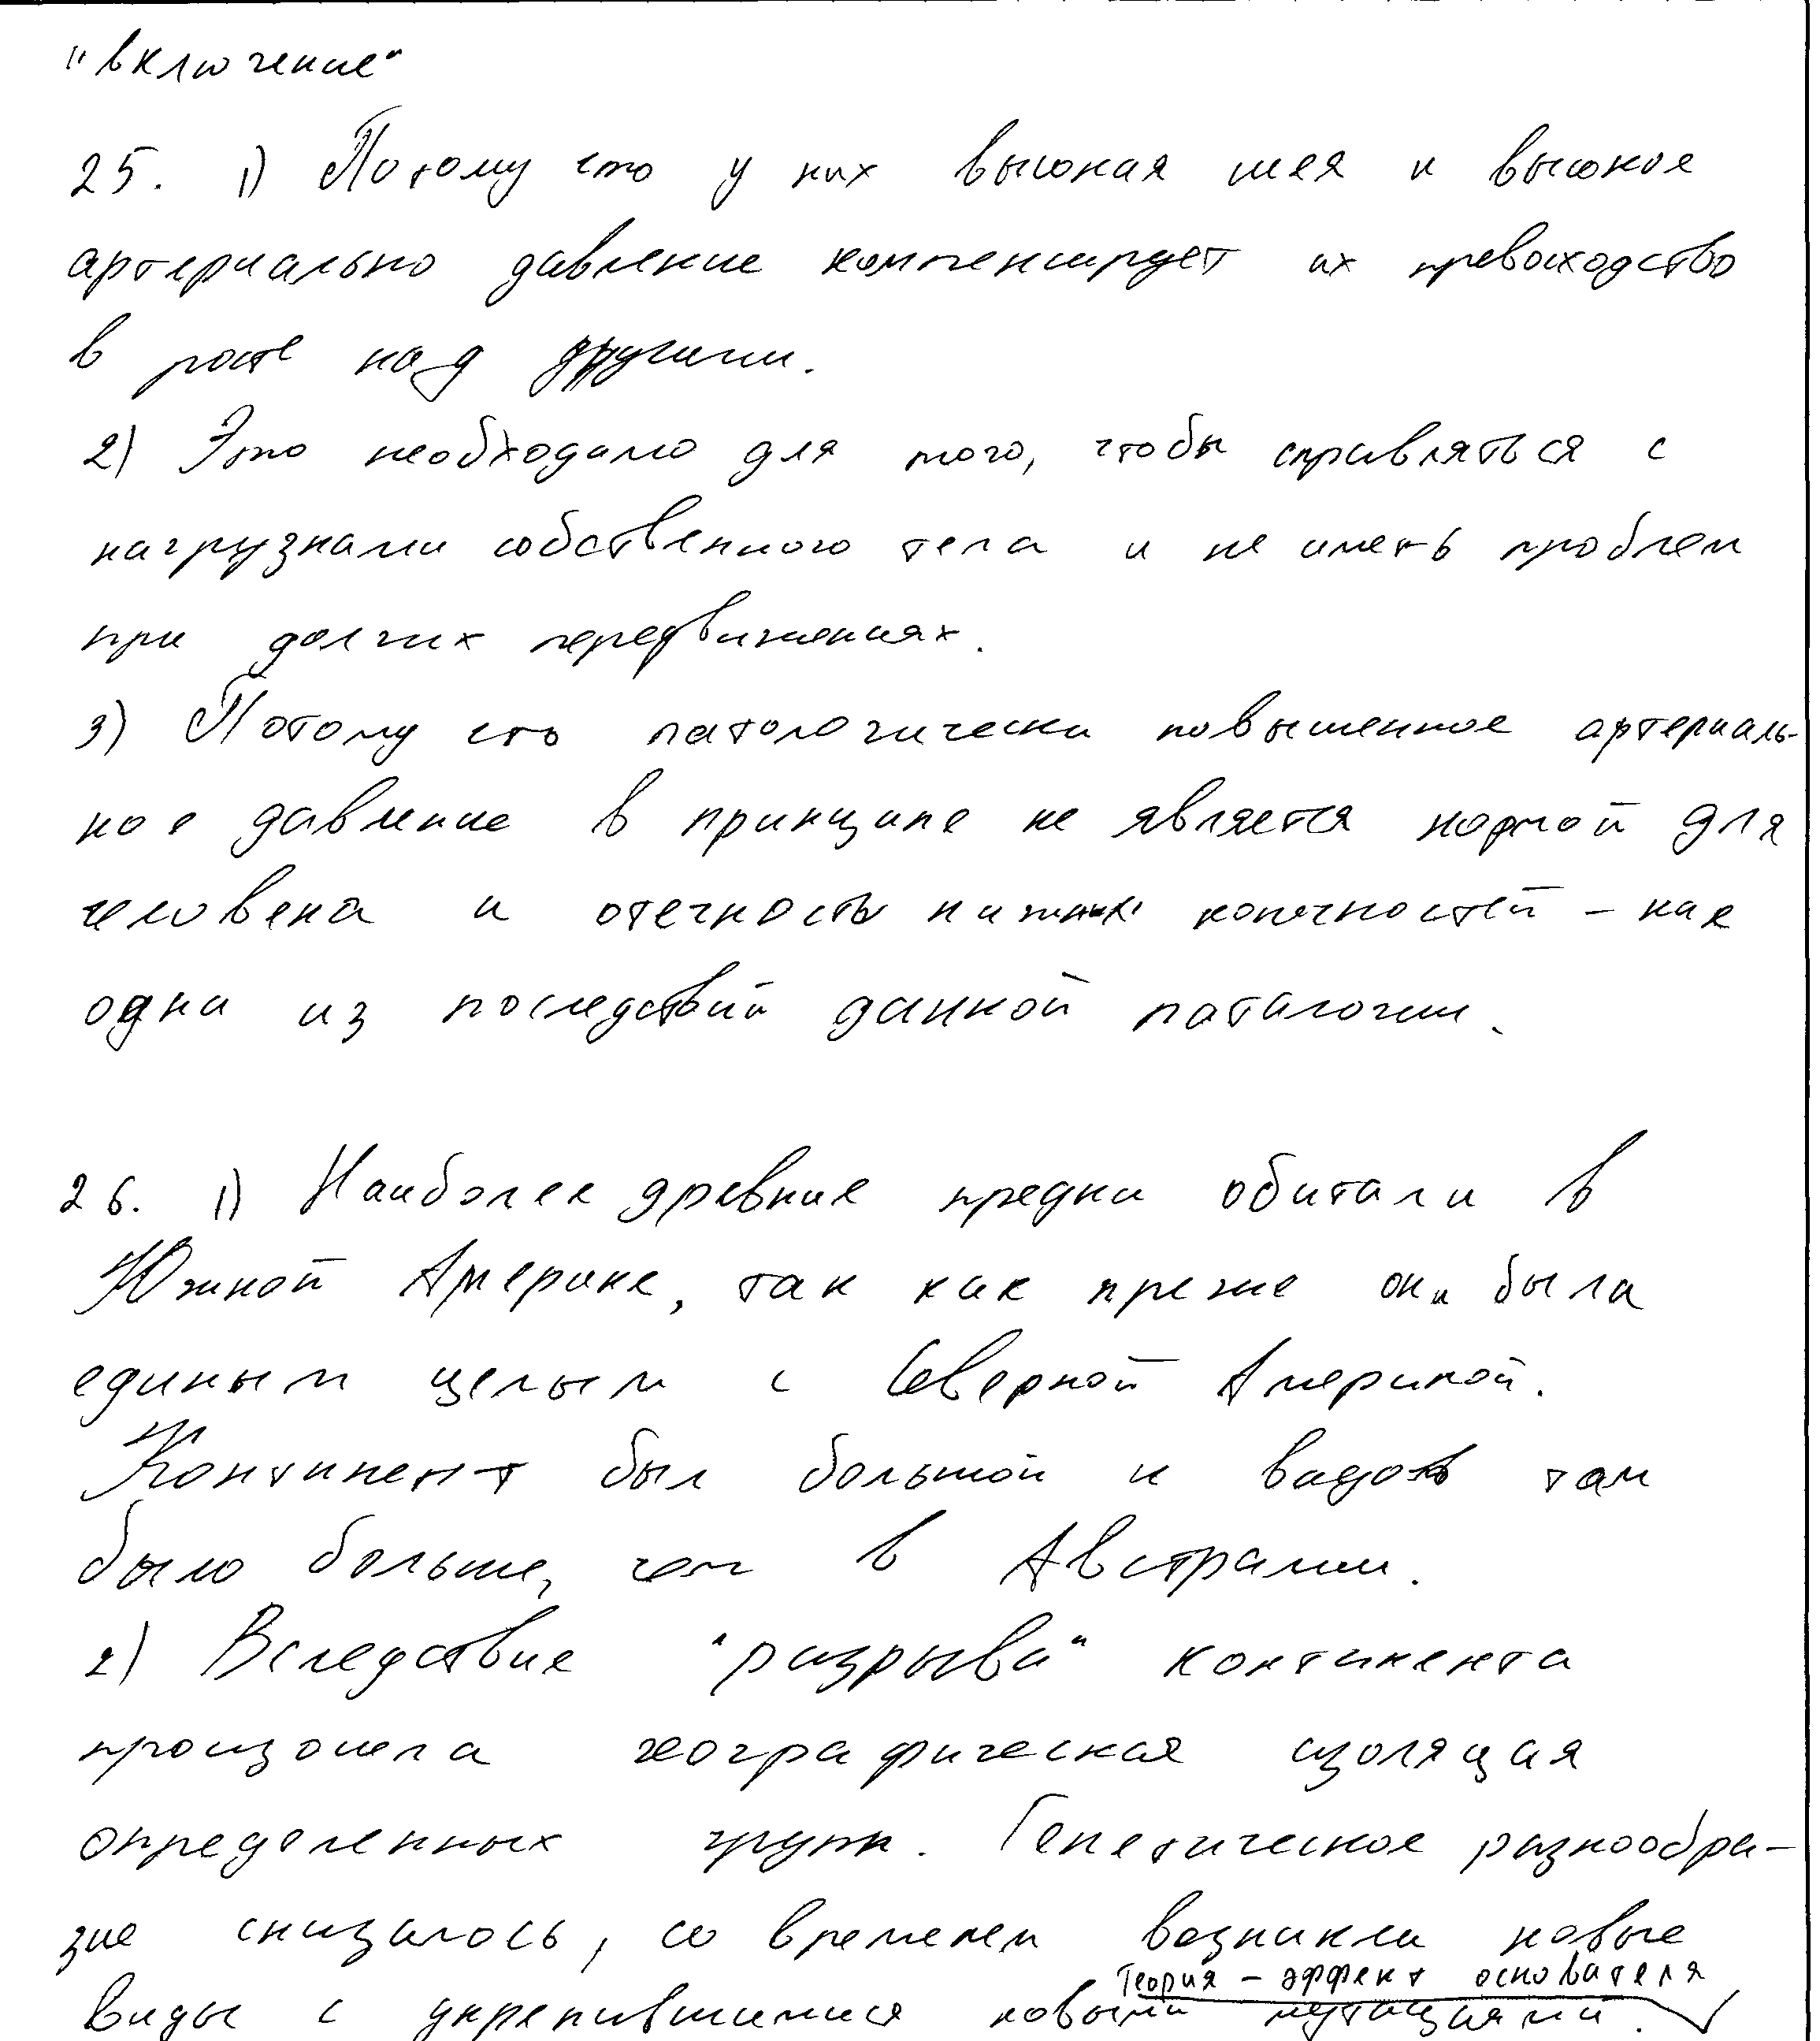 "включение"
25. 1) Потому что у них высокая шея и высокое
артериально давление компенсирует их превосходство
в росте над другими.
2) Это необходимо для того, чтобы справляться с
нагрузками собственного тела и не иметь проблем
при долгих передвижениях.
3) Потому что патологически повышенное артериаль-
ное давление в принципе не является нормой для
человека и отечность нижних конечностей – как
одна из последствий данной паталогии.
26. 1) Наиболее древние предки обитали в
Южной Америке, так как преже она была
единым целым с Северной Америкой.
Континент был большой и видов там
было больше, чем в Австралии.
2) Вследствие "разрыва" континента
произошла географическая изоляция
определенных групп. Генетическое разнообра-
зие снизилось, со временем возникли новые
Теория – эффект основателя
виды с укрепившимися новыми мутациями.